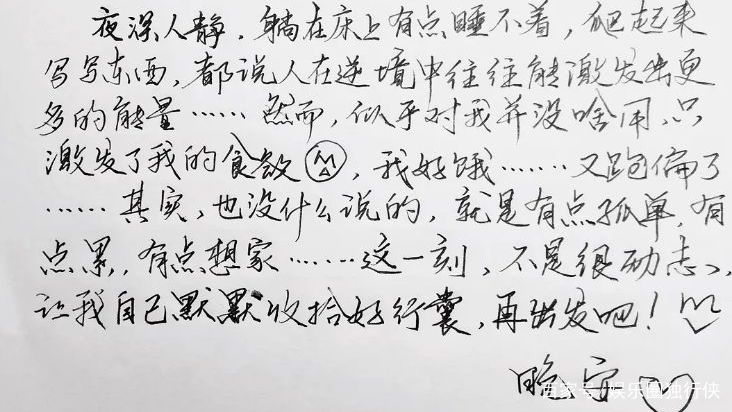 夜深人静，躺在床上有点睡不着，爬起来
写写东西，都说人在逆境中往往能激发出更
多的能量……然而，似乎对我并没啥用，只
激发了我的食欲，我好饿……又跑偏了
……其实，也没什么说的，就是有点孤单，有
点累，有点想家……这一刻，不是很励志，
让我自己默默收拾好行囊，再出发吧！
晚安
百家号/娱乐圈独行侠